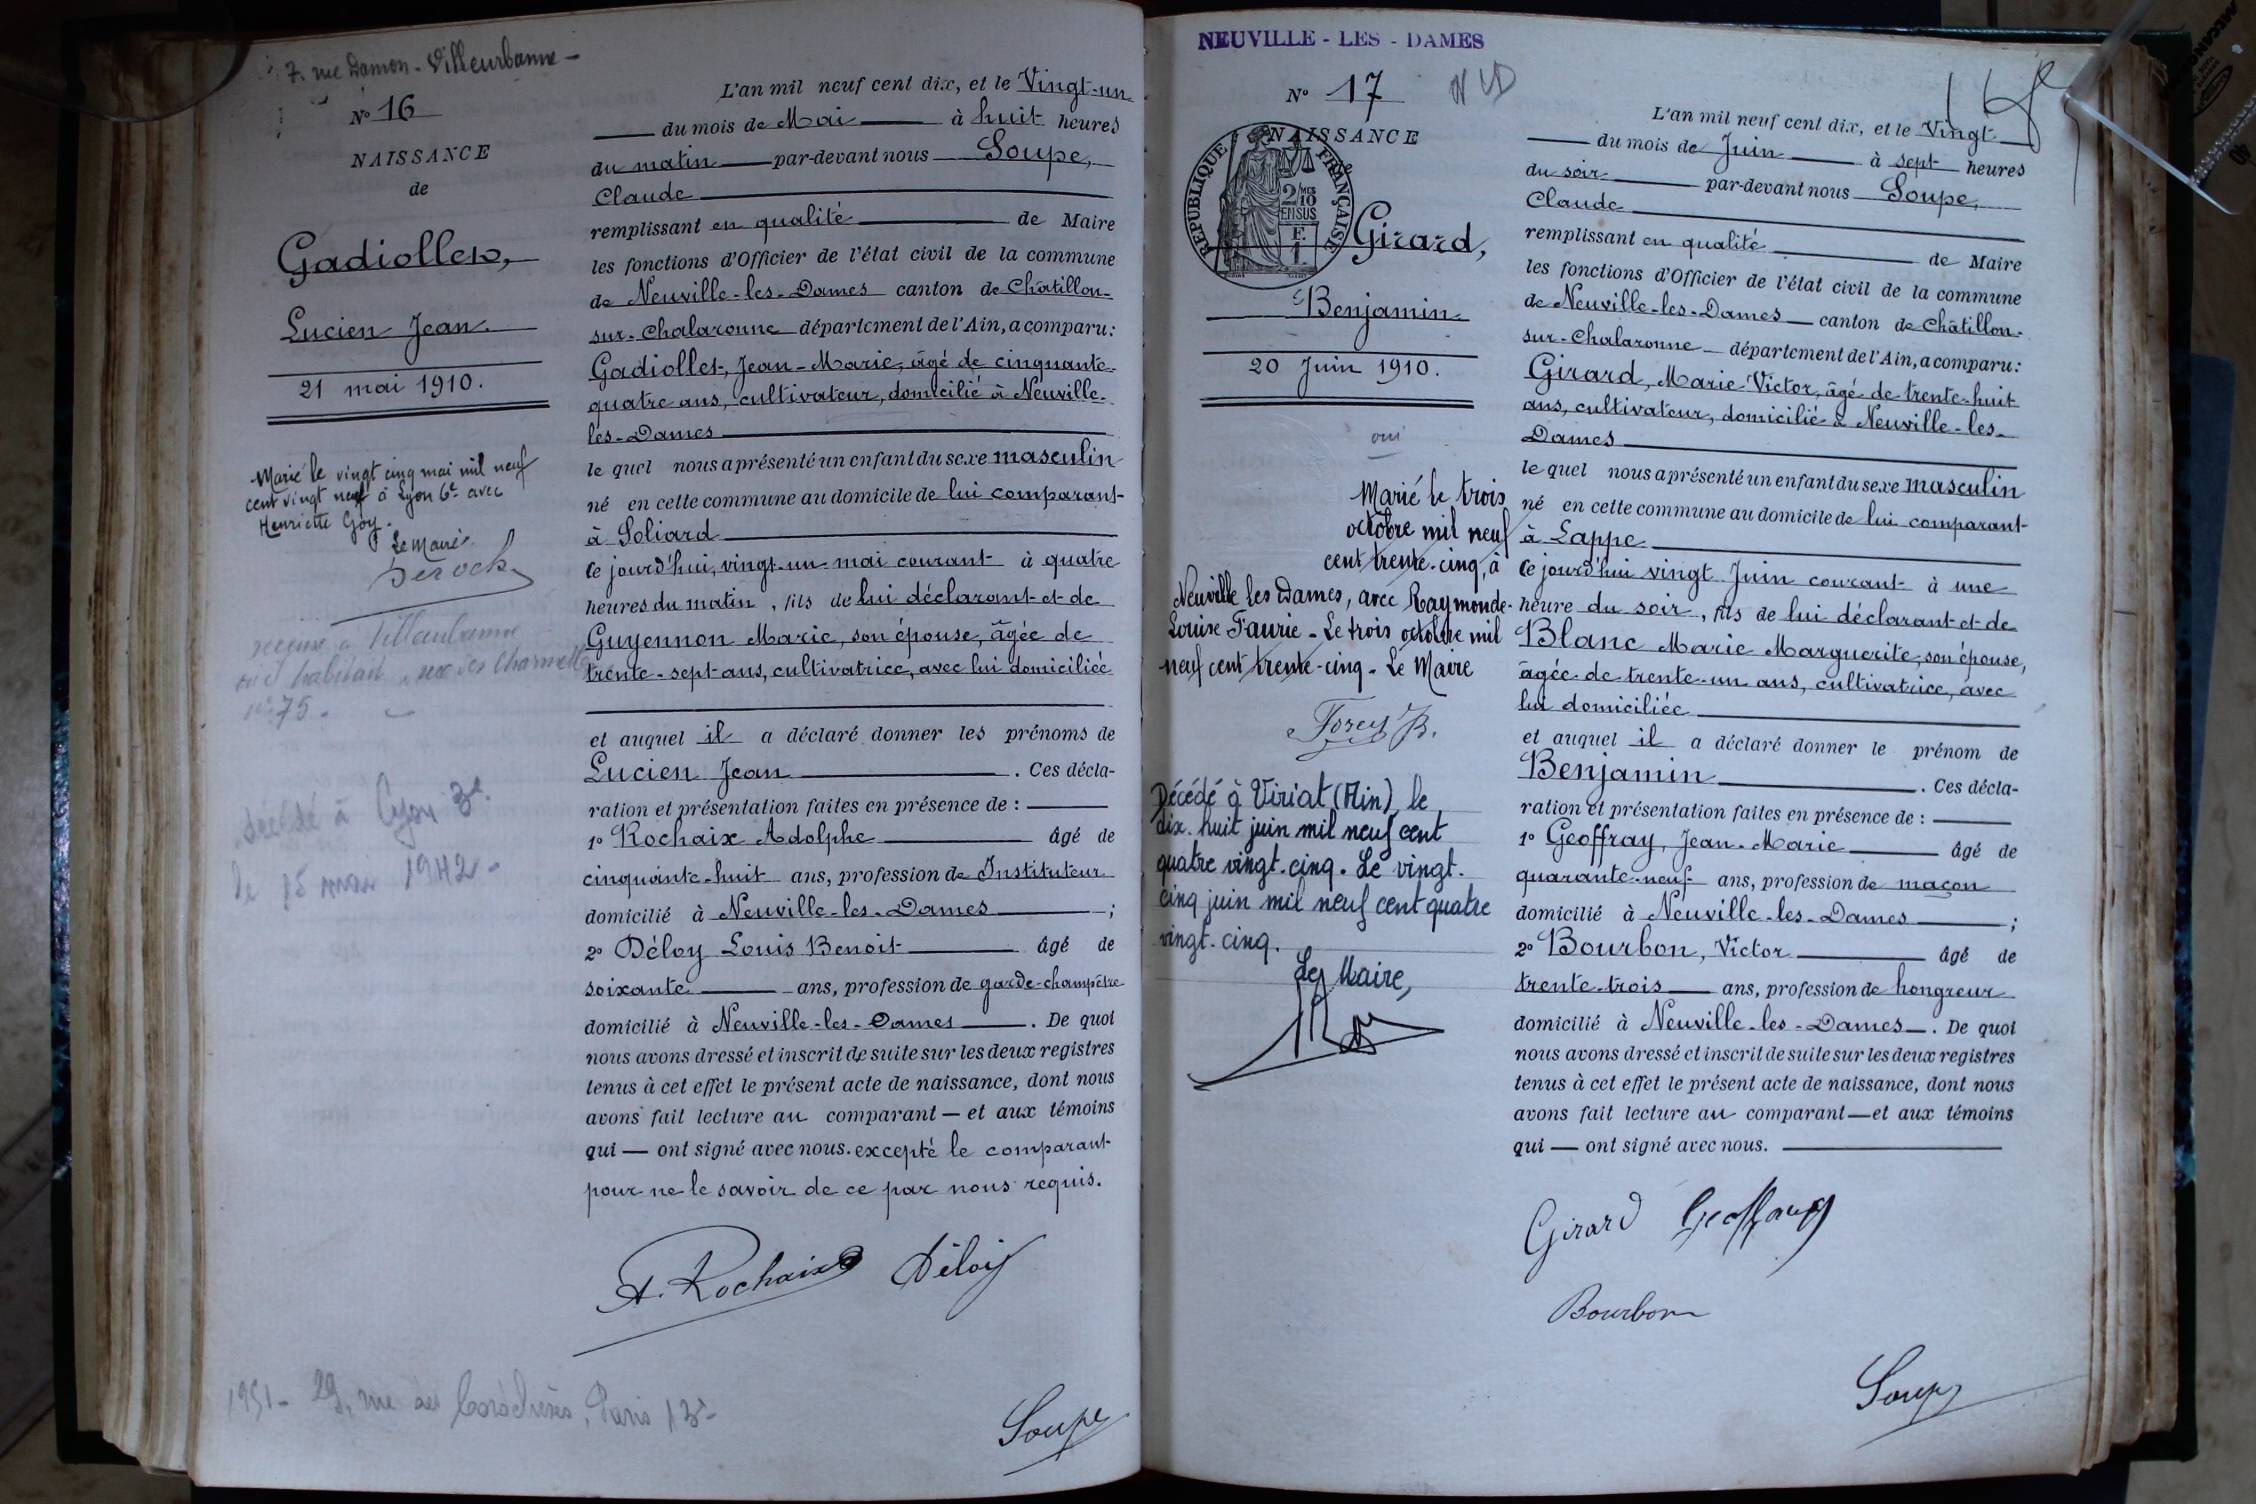 7. rue Damon - Villeurbanne -
N° 16
NAISSANCE
de
Gadiollet,
Lucien Jean.
21 mai 1910.
Marié le vingt cinq mai mil neuf
cent vingt neuf à Lyon 6e avec
Henriette Goy.
Le Maire
habitant rue des Charmettes
n° 75.
décédé à Lyon 3e
le 15 mai 1942 -
L'an mil neuf cent dix, et le Vingt-un
du mois de Mai à huit heures
du matin par-devant nous Soupe,
Claude
remplissant en qualité de Maire
les fonctions d'Officier de l'état civil de la commune
de Neuville-les-Dames canton de Châtillon-
sur-Chalaronne département de l'Ain, a comparu:
Gadiollet, Jean-Marie, âgé de cinquante-
quatre ans, cultivateur, domicilié à Neuville-
les-Dames
le quel nous a présenté un enfant du sexe masculin
né en cette commune au domicile de lui comparant
à Soliard
ce jourd'hui, vingt-un mai courant à quatre
heures du matin, fils de lui déclarant et de
Guyennon Marie, son épouse, âgée de
trente-sept ans, cultivatrice, avec lui domiciliée
et auquel il a déclaré donner les prénoms de
Lucien Jean . Ces décla-
ration et présentation faites en présence de :
1° Rochaix Adolphe âgé de
cinquante-huit ans, profession de Instituteur
domicilié à Neuville-les-Dames ;
2° Déloy Louis Benoit âgé de
soixante ans, profession de garde-champêtre
domicilié à Neuville-les-Dames . De quoi
nous avons dressé et inscrit de suite sur les deux registres
tenus à cet effet le présent acte de naissance, dont nous
avons fait lecture au comparant — et aux témoins
qui — ont signé avec nous. excepté le comparant
pour ne le savoir de ce par nous requis.
A. Rochaix Déloy
1951 - 29, rue des Paris 13e
Soupe
NEUVILLE - LES - DAMES
N° 17
NLD
NAISSANCE
RÉPUBLIQUE FRANÇAISE
2/10
EN SUS
Girard,
Benjamin
20 Juin 1910.
oui
Marié le trois
octobre mil neuf
cent trente-cinq, à
Neuville les Dames, avec Raymonde-
Louise Faurie - Le trois octobre mil
neuf cent trente-cinq - Le Maire
Décédé à Viriat (Ain) le
dix-huit juin mil neuf cent
quatre vingt-cinq. Le vingt-
cinq juin mil neuf cent quatre
vingt-cinq.
Le Maire,
L'an mil neuf cent dix, et le Vingt
du mois de Juin à sept heures
du soir par-devant nous Soupe,
Claude
remplissant en qualité de Maire
les fonctions d'Officier de l'état civil de la commune
de Neuville-les-Dames canton de Châtillon-
sur-Chalaronne département de l'Ain, a comparu:
Girard, Marie Victor, âgé de trente-huit
ans, cultivateur, domicilié à Neuville-les-
Dames
le quel nous a présenté un enfant du sexe masculin
né en cette commune au domicile de lui comparant
à Lappe
ce jourd'hui vingt Juin courant à une
heure du soir, fils de lui déclarant et de
Blanc Marie Marguerite, son épouse,
âgée de trente-un ans, cultivatrice, avec
lui domiciliée
et auquel il a déclaré donner le prénom de
Benjamin . Ces décla-
ration et présentation faites en présence de :
1° Geoffray, Jean-Marie âgé de
quarante-neuf ans, profession de maçon
domicilié à Neuville-les-Dames ;
2° Bourbon, Victor âgé de
trente-trois ans, profession de hongreur
domicilié à Neuville-les-Dames . De quoi
nous avons dressé et inscrit de suite sur les deux registres
tenus à cet effet le présent acte de naissance, dont nous
avons fait lecture au comparant — et aux témoins
qui — ont signé avec nous.
Girard Geoffray
Bourbon
Soupe